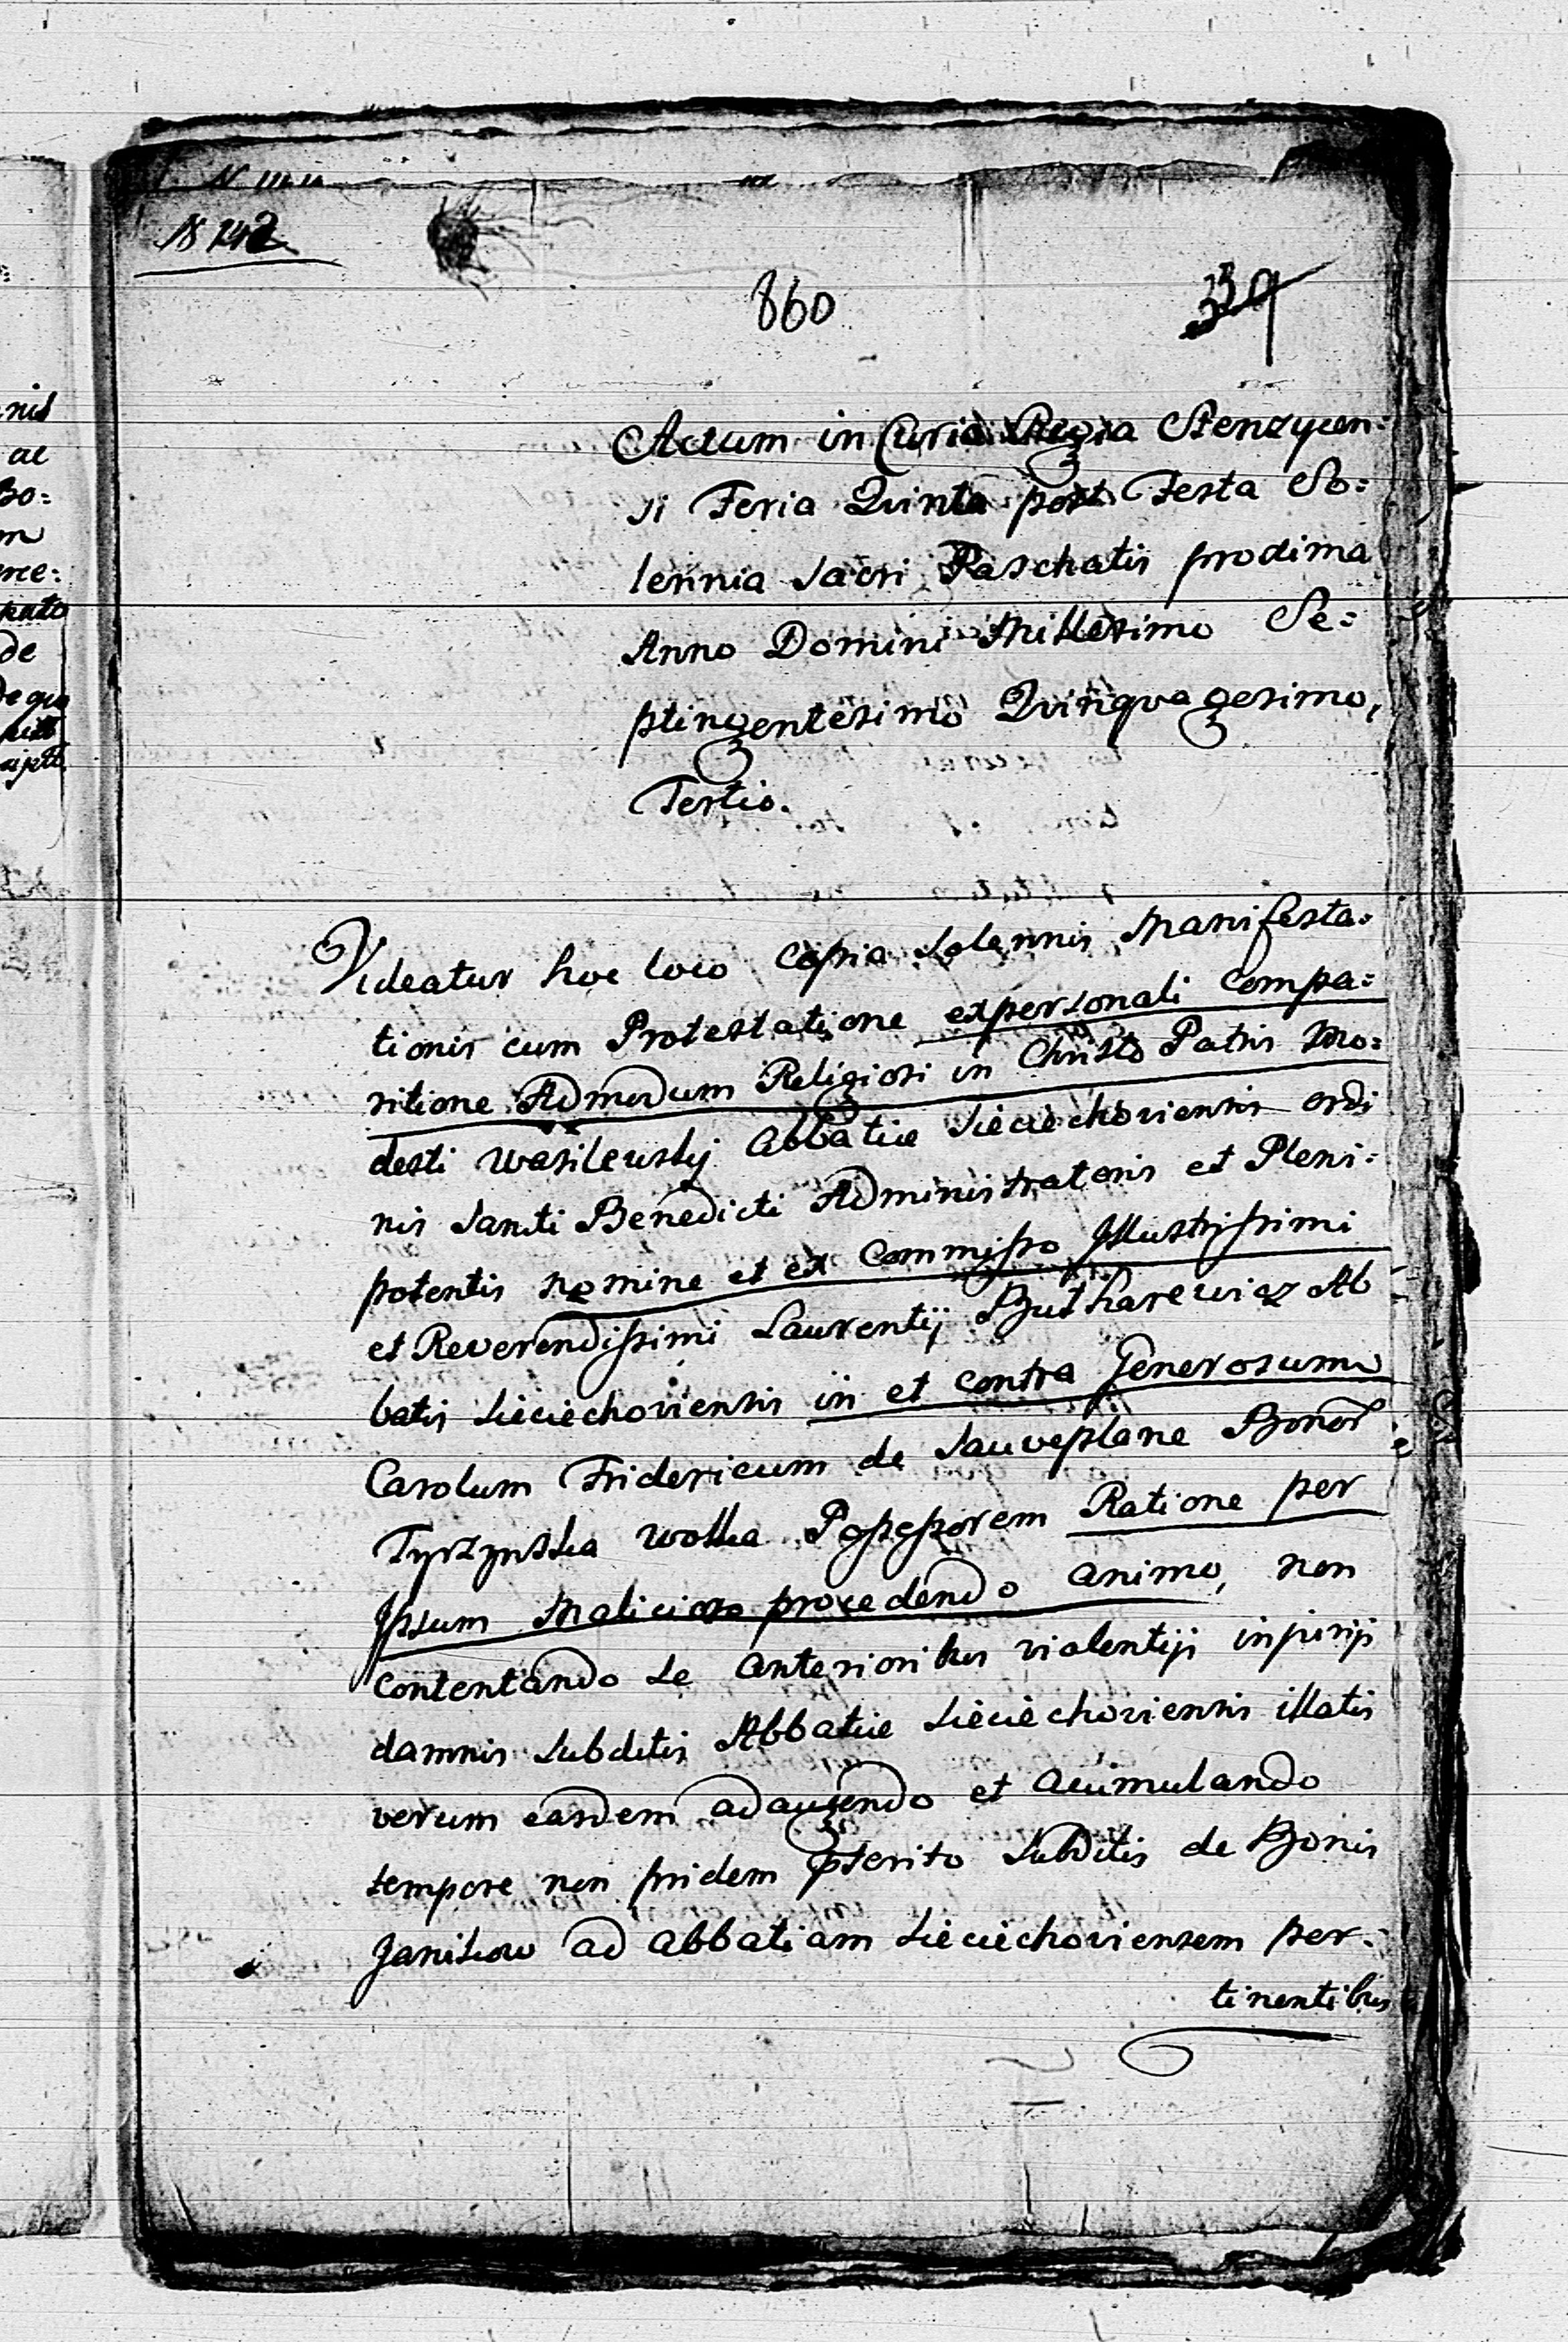 860
339
Actum in Curia Regia Stenzycen-
si Feria Quinta post Festa So:
lennia Sacri Paschatis proxima
Anno Domini Millesimo Se:
ptingentesimo Quinquagesimo,
Tertio.
Videatur hoc loco Copia Solennis Manifesta:
tionis cum Protestatione ex personali Compa:
ritione Admodum Religiosi in Christo Patris Mo:
desti Wasilewskij Abbatiæ Sieciechoviensis ordi
nis Sancti Benedicti Administratoris et Pleni:
potentis nomine et ex Commisso Illustrissimi
et Reverendissimi Laurentij Butharewicz Ab
batis Sieciechoviensis in et contra Generosum
Carolum Fridericum de Sauveplane Bonor
Tyrzynska Wolka Possessorem Ratione per
Ipsum Malicioso procedendo animo, non
contentando se anterioribus violentijs injurijs
damnis Subditis Abbatiæ Sieciechoviensis illatis
verum easdem adaugendo et acumulando
tempore non pridem pterito Subditis de Bonis
Janikow ad abbatiam Sieciechoviensem per:
tinentibus